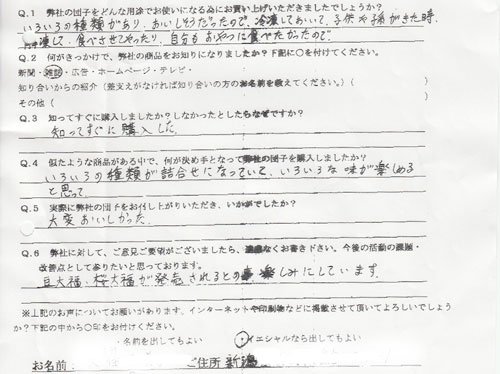 Q.1 弊社の団子をどんな用途でお使いになる為にお買い上げいただきましたでしょうか?
いろいろの種類があり、おいしそうだったので、冷凍しておいて、子供や孫がきた時、
凍して、食べさせてやったり、自分もおやつに食べたかったので
Q.2 何がきっかけで、弊社の商品をお知りになりましたか?下記に〇を付けてください。
新聞・雑誌・広告・ホームページ・テレビ・
知り合いからの紹介(差支えがなければ知り合いの方のお名前を教えてください。)( )
その他( )
Q.3 知ってすぐに購入しましたか?しなかったとしたらなぜですか?
知ってすぐに購入した
Q.4 似たような商品がある中で、何が決め手となって弊社の団子を購入しましたか?
いろいろの種類が詰合せになっていて、いろいろな味が楽しめる
と思って
Q.5 実際に弊社の団子をお召し上がりいただき、いかがでしたか?
大変おいしかった
Q.6 弊社に対して、ご意見ご要望がございましたら、遠慮なくお書き下さい。今後の活動の課題・
改善点として参りたいと思っております。
豆大福、桜大福が発売されるとの 楽しみにしています
※上記のお声についてお願いがあります、インターネットや印刷物などに掲載させて頂いてよろしいでしょう
か?下記の中から〇印をお付けください。
・名前を出してもよい ・イニシャルなら出してもよい
お名前: ご住所 新潟